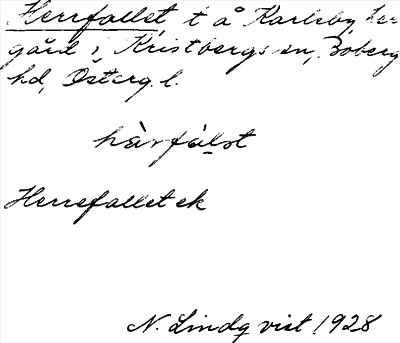 Herrfallet, t å Karlsby, her
gård i Kristbergs sn, Boberg
hd, Österg. l.
hàrfálǝt
Herrefallet ek
N. Lindqvist 1928